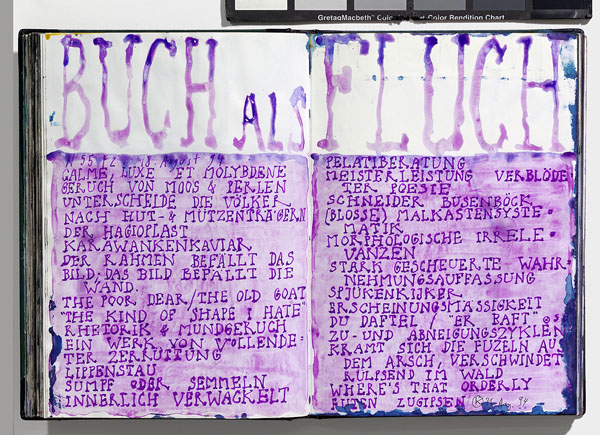 GretagMacbeth™ Color Rendition Chart
BUCH ALS FLUCH
August 94
CALME, LUXE ET MOLYBDENE
GERUCH VON MOOS & PERLEN
UNTERSCHEIDE DIE VÖLKER
NACH HUT- & MÜTZENTRÄGERN
DER HAGIOPLAST
KARAWANKENKAVIAR
DER RAHMEN BEFÄLLT DAS
BILD, DAS BILD BEFÄLLT DIE
WAND.
THE POOR DEAR/THE OLD GOAT
"THE KIND OF SHAPE I HATE"
RHETORIK & MUNDGERUCH
EIN WERK VON VOLLENDE=
TER ZERRÜTTUNG
LIPPENSTAU
SUMPF ODER SEMMELN
INNERLICH VERWACKELT
PELATIBERATUNG
MEISTERLEISTUNG VERBLÖDE
TER POESIE
SCHNEIDER BUSENBÖCK
(BLOSSE) MALKASTENSYSTE-
MATIK
MORPHOLOGISCHE IRRELE-
VANZEN
STARK GESCHEUERTE WAHR-
NEHMUNGSAUFFASSUNG
SPJUKENKIJKER
ERSCHEINUNGSMÄSSIGKEIT
DU "ER RAFT"
ZU- UND ABNEIGUNGSZYKLEN
KRAMT SICH DIE FUZELN AUS
DEM ARSCH, VERSCHWINDET
RÜLPSEND IM WALD
WHERE'S THAT ORDERLY
RUTEN ZUGIPSEN 94